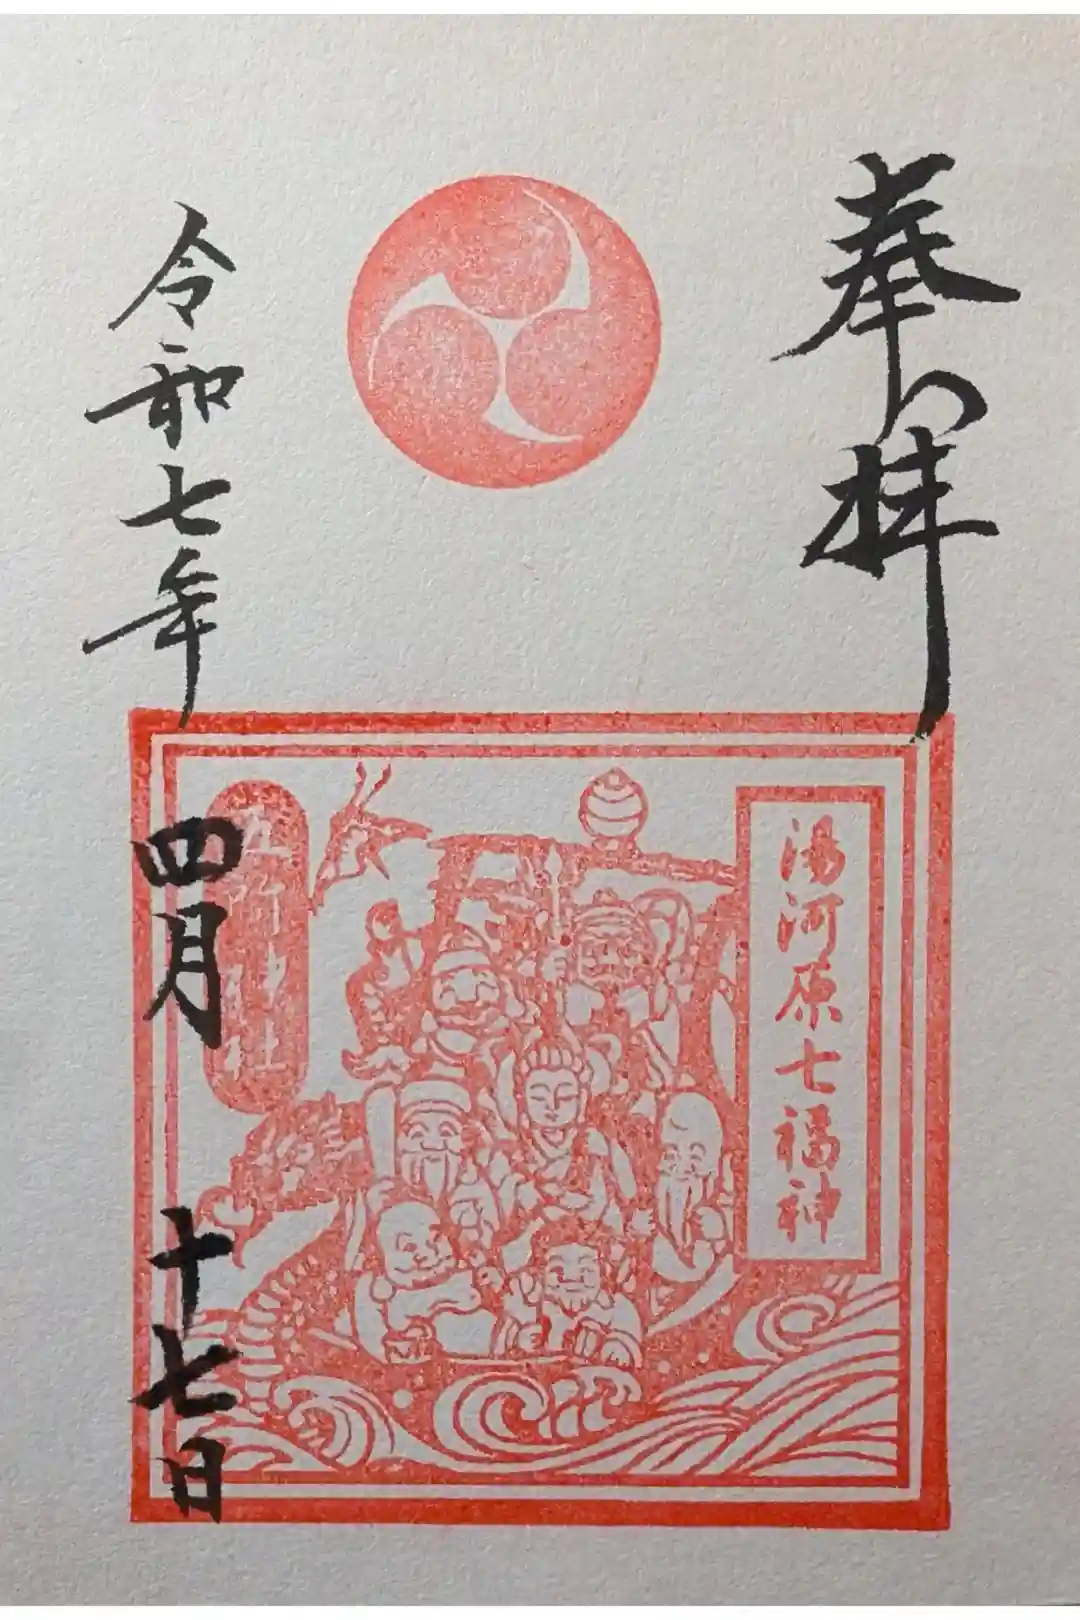 奉拝
湯河原七福神
五所神社
令和七年四月十七日